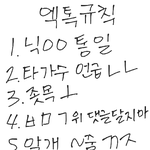 엑톡규칙
1. 닉00 통일
2. 타가수 언급 ㄴㄴ
3. 좆목 ㅗ
4. ㅂㅁㄱ위 댓글달지마
5. 막개 ~줌 ㄲㅈ